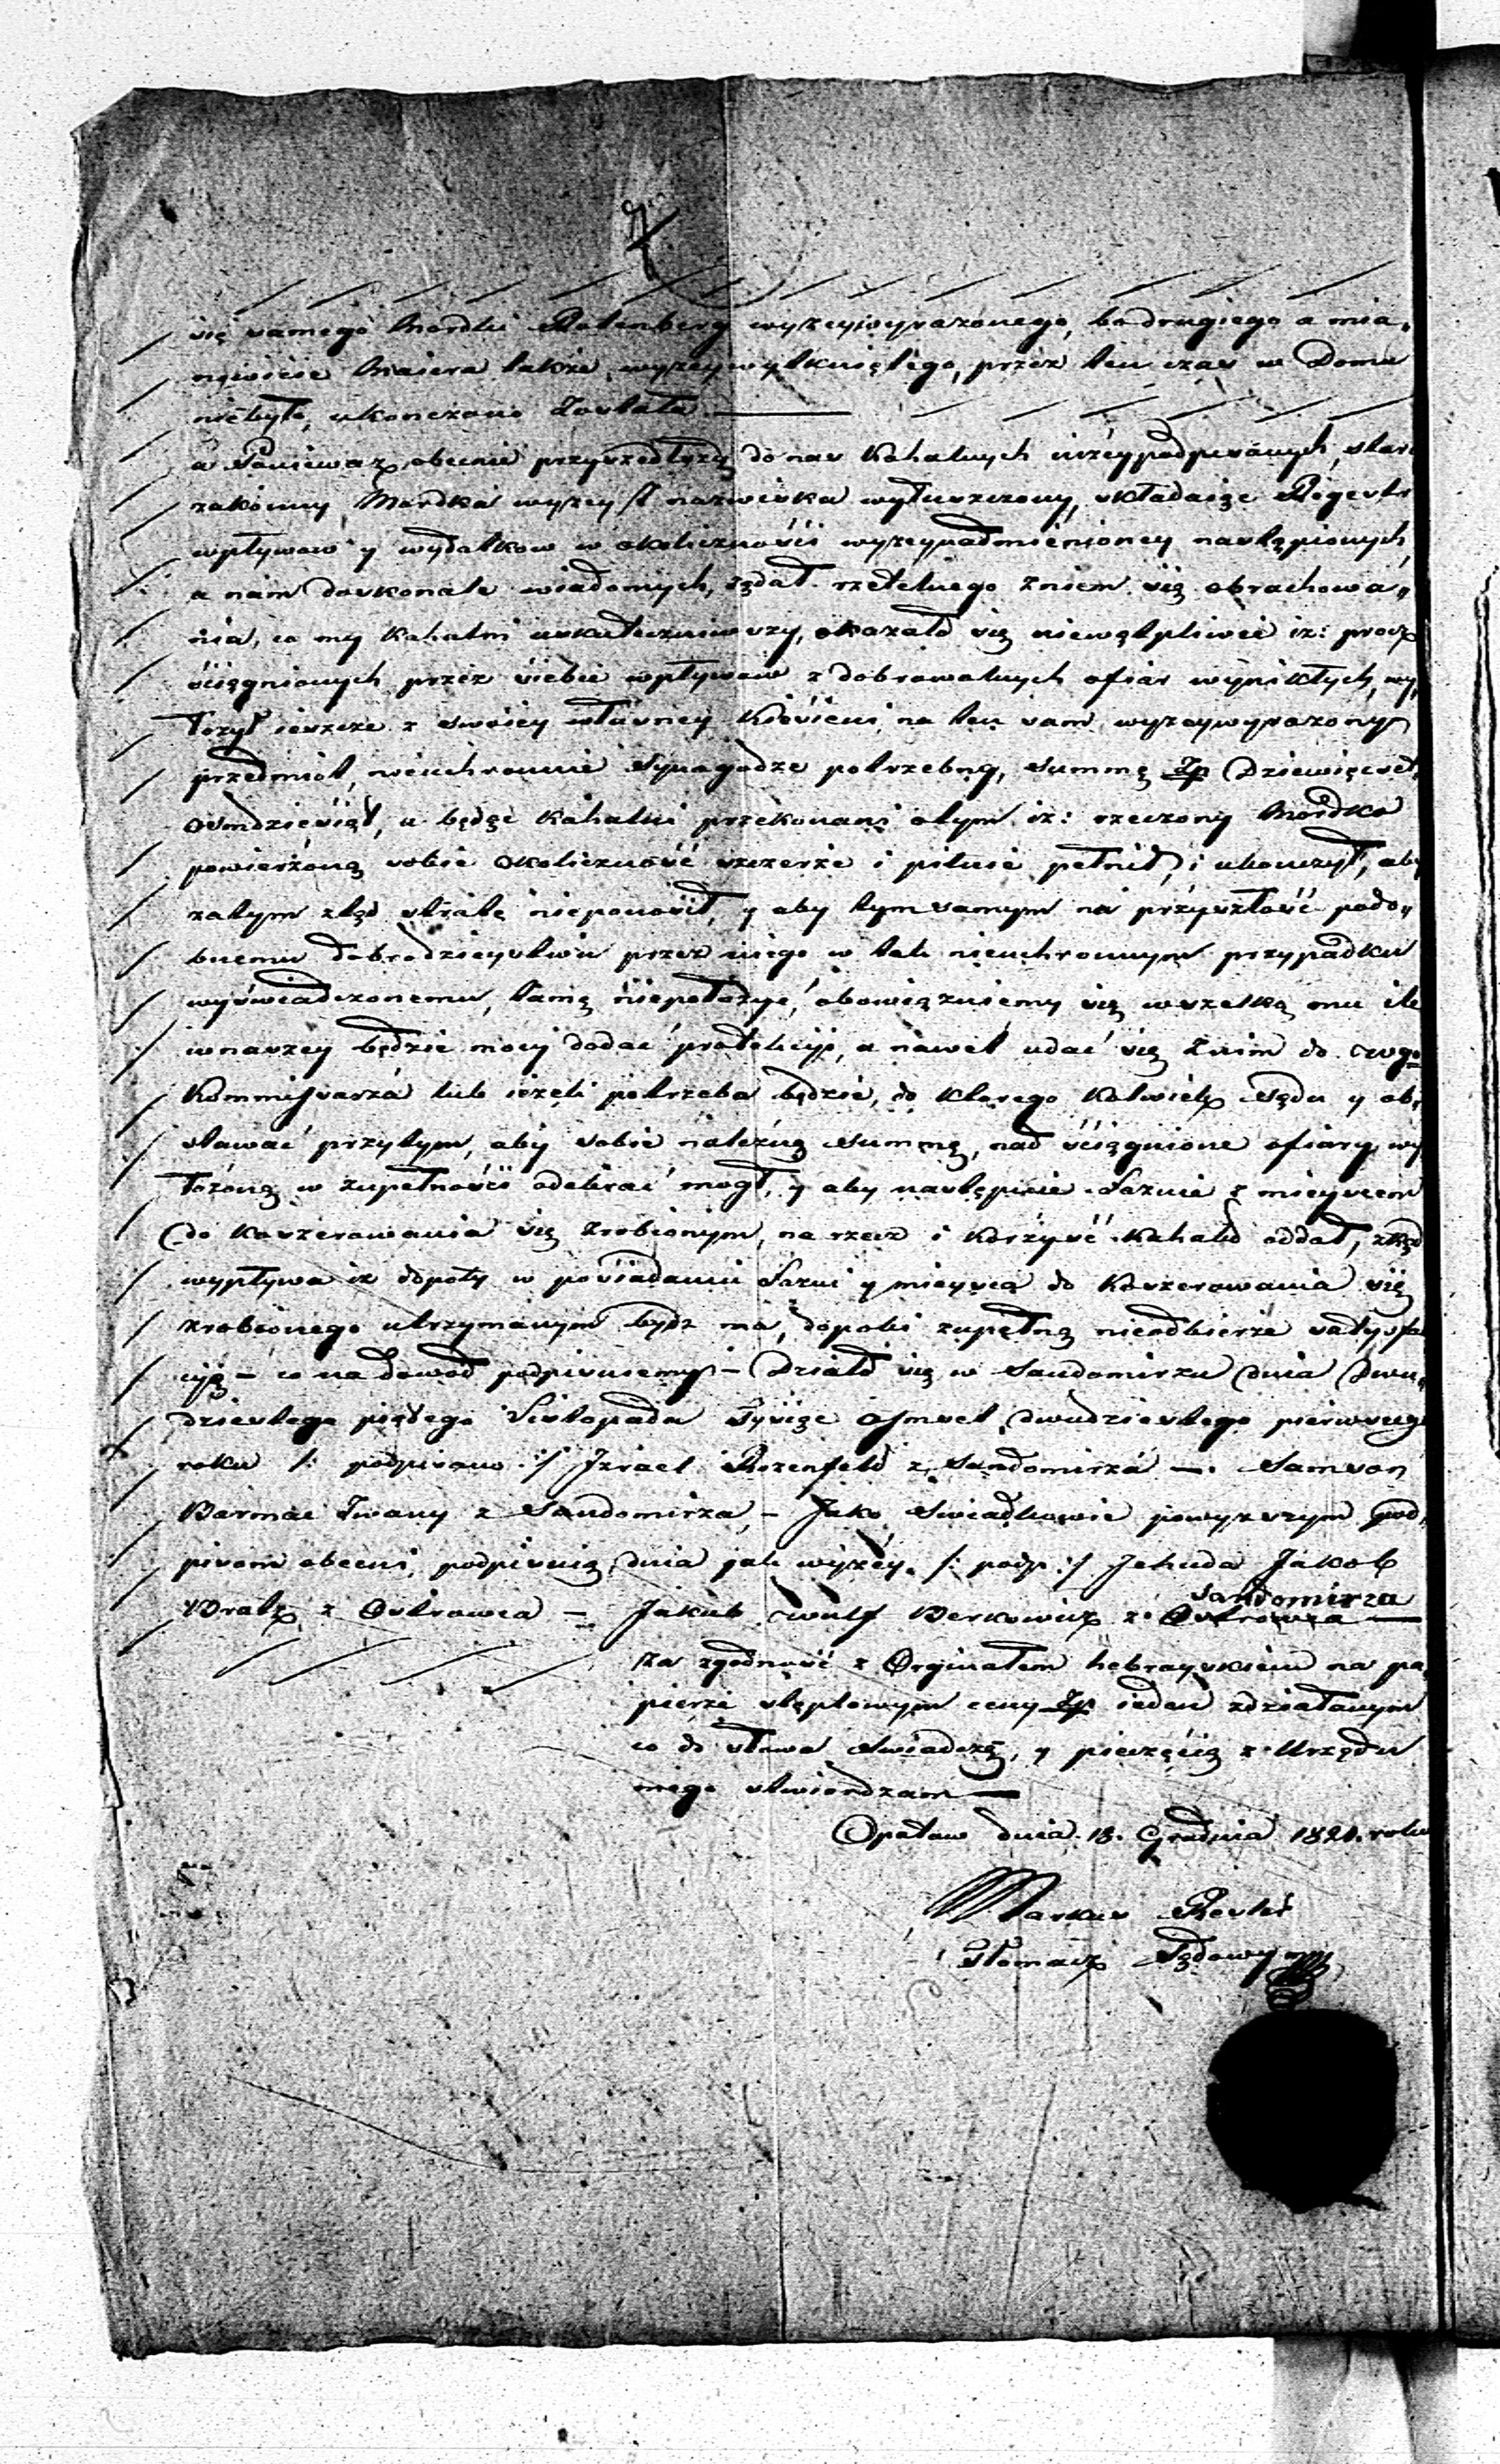 się samego Mordki Rotenberg wyzeywyrażonego, bo drugiego a mia„
nowicie Maiera także, wyzeywytkniętego, przez ten czas w Domu
niebyło, ukonczono Zostało. ———
a Poniewaz obecnie przyszedłszy do nas Kahalnych niżeypodpisanych, star
zakonny Mordka wyzey z nazwiska wyłuszczony, składaiąc Regestr
wpływow y wydatkow w okoliczności wyzeynadmienioney nastąpionych
a nam doskonale wiadomych, żądał rzetelnego zniem się obrachowa„
nia, co my Kahalni uskuteczniwszy, okazało się niewątpliwie iz: procz
ściągnionych przez siebie wpływow z dobrowolnych ofiar wynikłych, wy„
łożył ieszcze z swoiey własney Kieszeni na ten sam wyzeywyrażony
przedmiot, nieuchronnie Synagodze potrzebny, Summę Zp Dziewięćset,
osmdziesiąt, a będąc Kahalni przekonani otym iz: rzeczony Mordka
powierzoną sobie okoliczność szczerze i pilnie pełnił, i ukonczył, aby
zatym ztąd stratę nieponosił, y aby tym samym na przyszłość podo„
bnemu dobrodzieystwu przez niego w tak nieuchronnym przypadku
wyświadczonemu, tamę niepołożyć, obowiązuiemy się wszelką mu ile
wnaszey będzie mocy dodać protekcyją, a nawet udać się Znim do czego
Kommissarza lub ieżeli potrzeba będzie, do którego Kolwiek Sądu y ob„
stawać przytym, aby sobie należną Summę, nad ściągnione ofiary wy
łożoną w zupełności odebrać mogł, y aby następnie Łaznie z mieyscem
do Koszerowania się zrobionym, na rzecz i Korzyść Kahału oddał, zkąd
wypływa iz dopoty w posiadaniu Łazni y mieysca do Koszerowania się
zrobionego utrzymanym bydz ma, dopoki zupełną nieodbierze satysfa
cyją – co na dowod podpisuiemy – Działo się w Sandomirzu dnia Dwu„
dziestego piątego Listopada Tysiąc Osmset dwudziestego pierwszego
roku /: podpisano :/ Izrael Rozenfeld z Sandomirza —. Samson
Barmac Iwany z Sandomirza, – Jako Swiadkowie powyzszym pod„
pisom obecni, podpisuią dnia jak wyżéy. /: podp :/ Jehuda Jakob
Bratz z Ostrowca – Jakub Wulf Berkowicz z Ostrowca —
Sandomirza
Za zgodność z Orginałem hebrayskiem na pa„
pierze stęplowym ceny Zp ieden zdziałanym
co do słowa Swiadczę, y pieczęcią z Urzędu
mego stwierdzam —
Opatow dnia 18. Grudnia 1821. roku
Markus
Tłomacz Sądowy